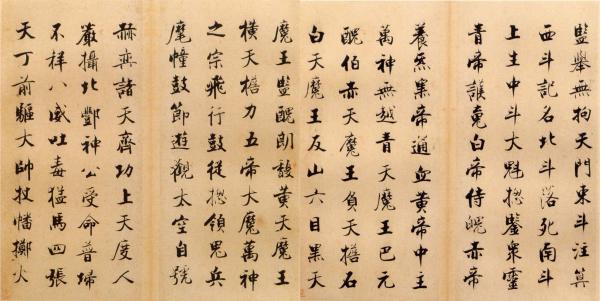 監舉無拘天門東斗注筭
西斗記名北斗落死南斗
上生中斗大魁揔鑒衆靈
青帝護䰟白帝侍魄赤帝
養炁黑帝通血黄帝中主
萬神無越青天魔王巴元
醜伯赤天魔王負天擔石
白天魔王反山六目黑天
魔王監醜朗馥黄天魔王
橫天擔力五帝大魔萬神
之宗飛行鼓從揔領鬼兵
麾幢鼓節遊觀太空自號
赫奕諸天齊功上天度人
嚴攝北酆神公受命普掃
不祥八威吐毒猛馬四張
天丁前驅大帥仗幡擲火